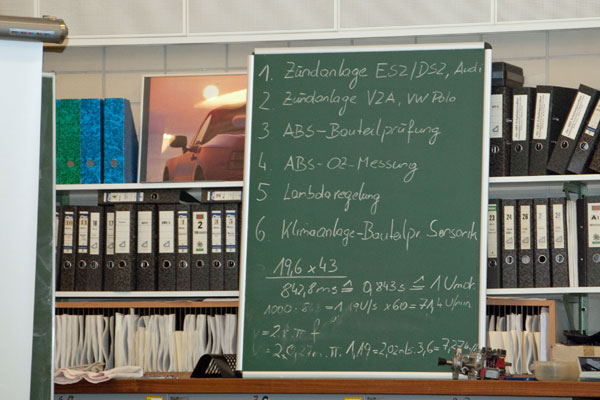 1. Zündanlage ESZ/DSZ, Audi
2 Zündanlage VZA, VW Polo
3 ABS-Bauteilprüfung
4. ABS-Oz-Messung
5 Lambdaregelung
6. Klimaanlage-Bauteilpr. Sensorik
19,6 x 43
842,8 ms ≙ 0,843 s ≙ 1 Umdr.
1000 : = 1,19 U/s x 60 = 71,4 U/min
= 2 π f
= 2 . π . 1,19 = 2,02 m/s . 3,6 = 7,27